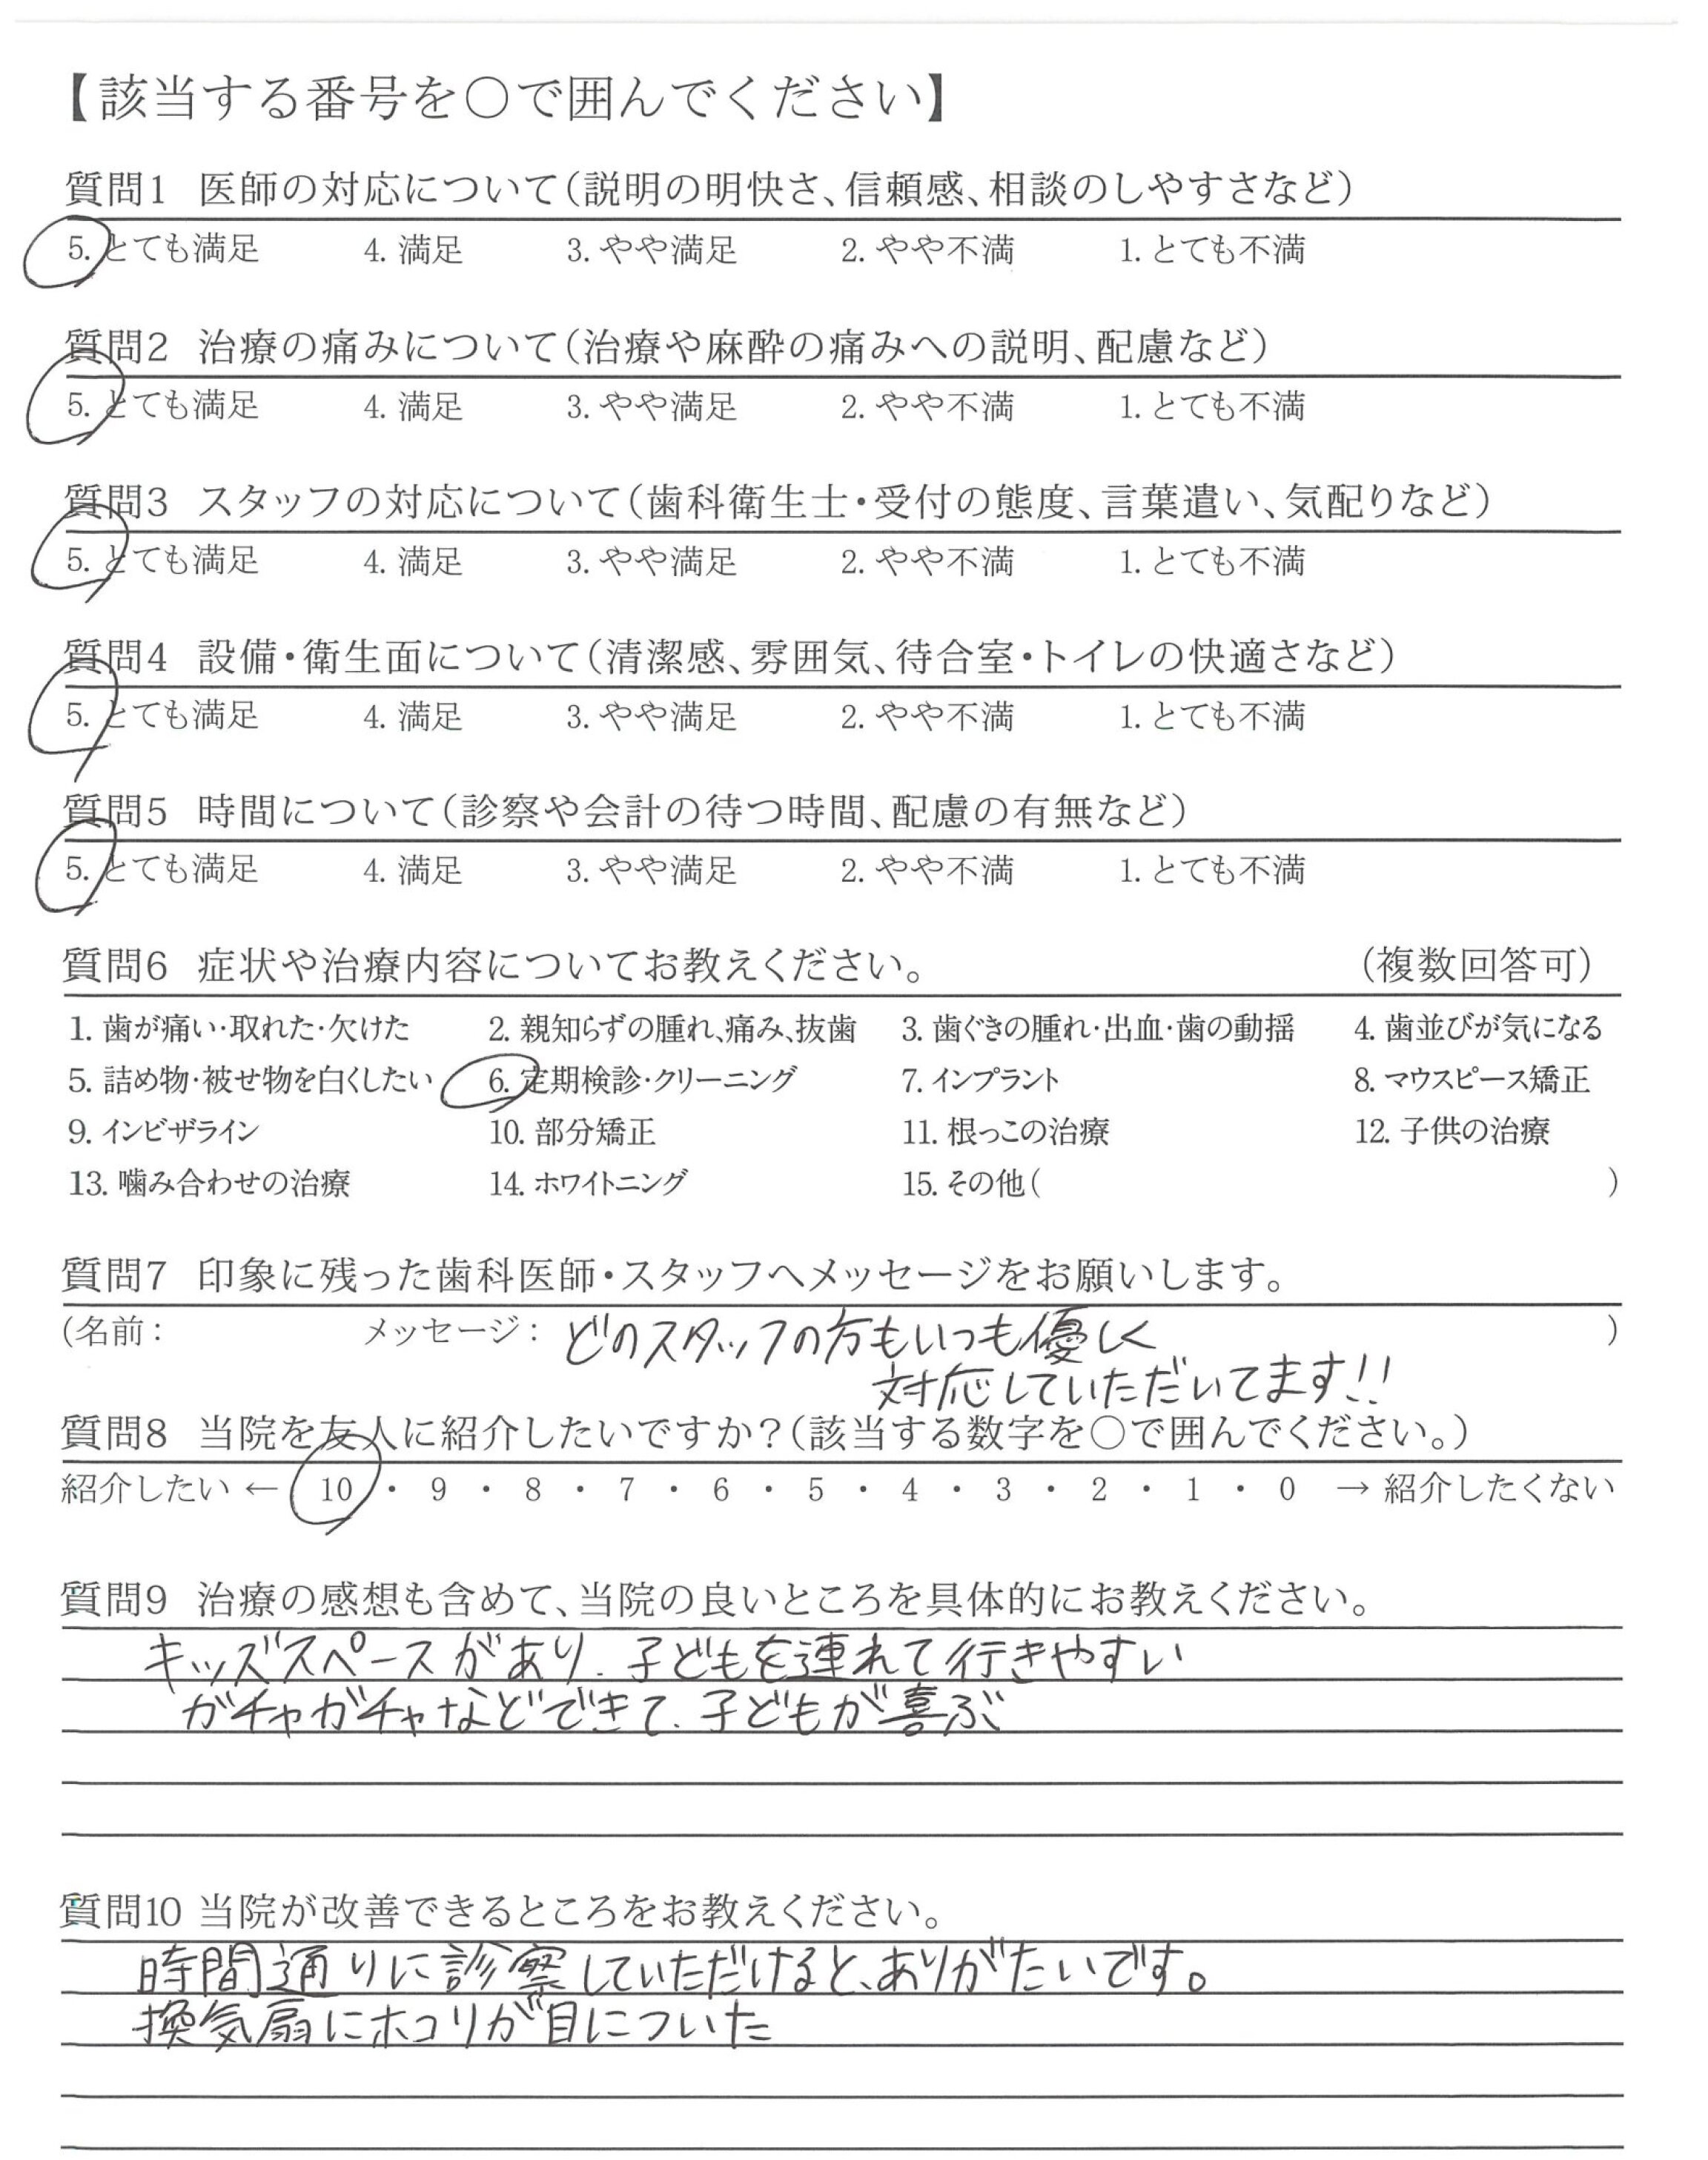 【該当する番号を○で囲んでください】
質問1 医師の対応について（説明の明快さ、信頼感、相談のしやすさなど）
5. とても満足 4. 満足 3. やや満足 2. やや不満 1. とても不満
質問2 治療の痛みについて（治療や麻酔の痛みへの説明、配慮など）
5. とても満足 4. 満足 3. やや満足 2. やや不満 1. とても不満
質問3 スタッフの対応について（歯科衛生士・受付の態度、言葉遣い、気配りなど）
5. とても満足 4. 満足 3. やや満足 2. やや不満 1. とても不満
質問4 設備・衛生面について（清潔感、雰囲気、待合室・トイレの快適さなど）
5. とても満足 4. 満足 3. やや満足 2. やや不満 1. とても不満
質問5 時間について（診察や会計の待つ時間、配慮の有無など）
5. とても満足 4. 満足 3. やや満足 2. やや不満 1. とても不満
質問6 症状や治療内容についてお教えください。 （複数回答可）
1. 歯が痛い・取れた・欠けた 2. 親知らずの腫れ、痛み、抜歯 3. 歯ぐきの腫れ・出血・歯の動揺 4. 歯並びが気になる
5. 詰め物・被せ物を白くしたい 6. 定期検診・クリーニング 7. インプラント 8. マウスピース矯正
9. インビザライン 10. 部分矯正 11. 根っこの治療 12. 子供の治療
13. 噛み合わせの治療 14. ホワイトニング 15. その他（ ）
質問7 印象に残った歯科医師・スタッフへメッセージをお願いします。
（名前： メッセージ： どのスタッフの方もいつも優しく ）
対応していただいてます!!
質問8 当院を友人に紹介したいですか？（該当する数字を○で囲んでください。）
紹介したい ← 10 ・ 9 ・ 8 ・ 7 ・ 6 ・ 5 ・ 4 ・ 3 ・ 2 ・ 1 ・ 0 → 紹介したくない
質問9 治療の感想も含めて、当院の良いところを具体的にお教えください。
キッズスペースがあり、子どもを連れて行きやすい
ガチャガチャなどできて、子どもが喜ぶ
質問10 当院が改善できるところをお教えください。
時間通りに診察していただけると、ありがたいです。
換気扇にホコリが目についた